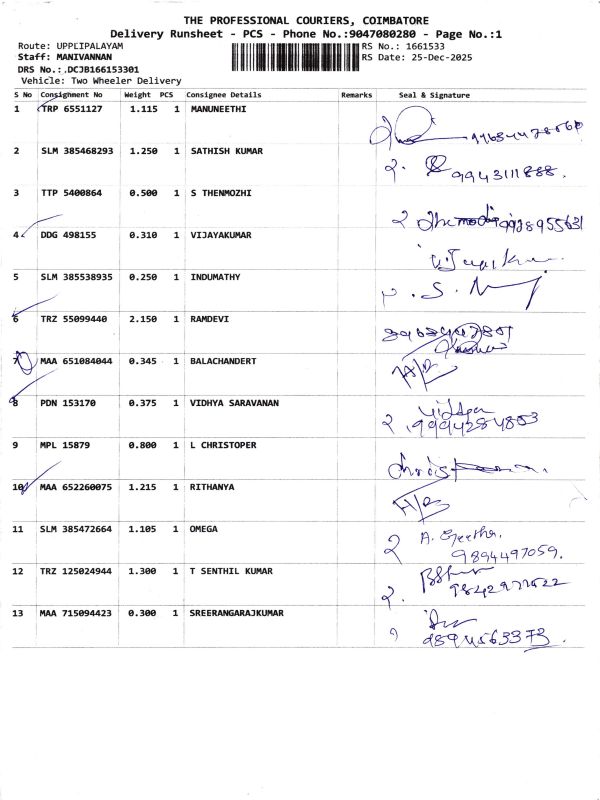 THE PROFESSIONAL COURIERS, COIMBATORE
Delivery Runsheet - PCS - Phone No.:9047080280 - Page No.:1
Route: UPPLIPALAYAM RS No.: 1661533
Staff: MANIVANNAN RS Date: 25-Dec-2025
DRS No.:.DCJB166153301
Vehicle: Two Wheeler Delivery
S No Consighnment No Weight PCS Consignee Details Remarks Seal & Signature
1 TRP 6551127 1.115 1 MANUNEETHI
2 SLM 385468293 1.250 1 SATHISH KUMAR
9943111888.
3 TTP 5400864 0.500 1 S THENMOZHI
4 DDG 498155 0.310 1 VIJAYAKUMAR
5 SLM 385538935 0.250 1 INDUMATHY
6 TRZ 55099440 2.150 1 RAMDEVI
7 MAA 651084044 0.345 1 BALACHANDERT
8 PDN 153170 0.375 1 VIDHYA SARAVANAN
Vidhya
9994284803
9 MPL 15879 0.800 1 L CHRISTOPER
10 MAA 652260075 1.215 1 RITHANYA
11 SLM 385472664 1.105 1 OMEGA
A. Geetha.
9894497059.
12 TRZ 125024944 1.300 1 T SENTHIL KUMAR
13 MAA 715094423 0.300 1 SREERANGARAJKUMAR
9894563373.